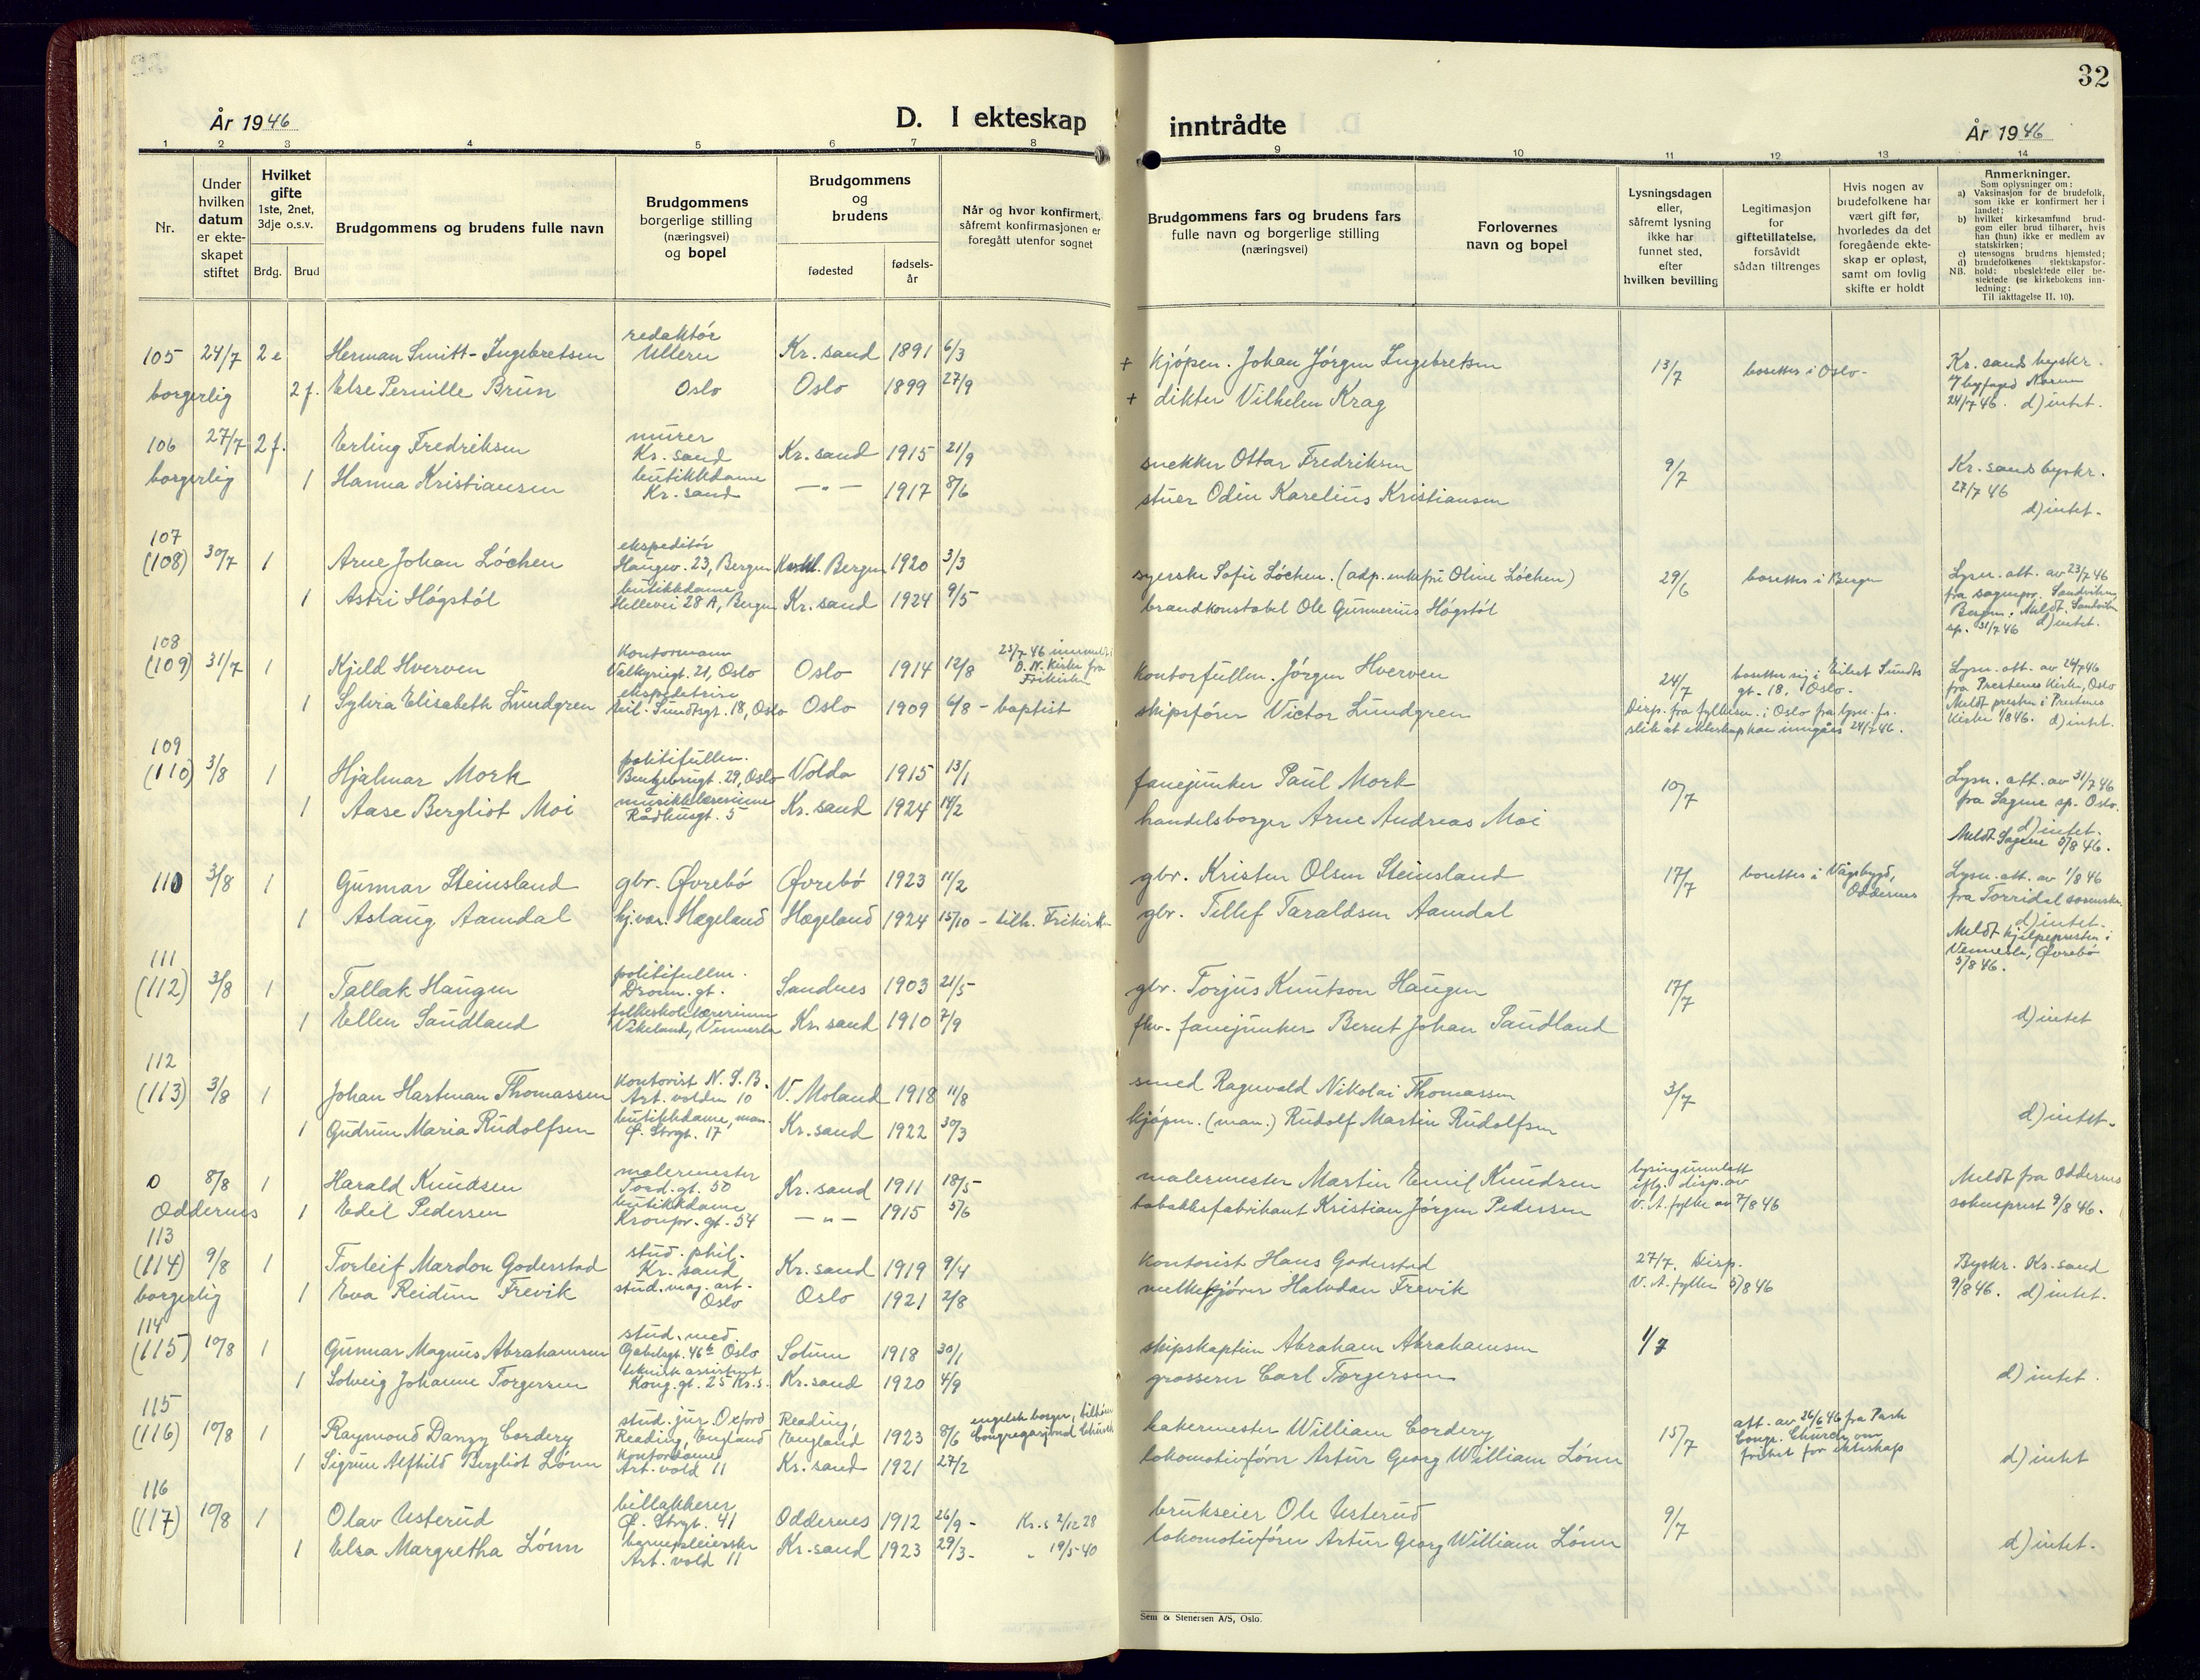 32
År 1946
D. I ekteskap inntrådte
År 1946
1 2 3 4 5 6 7 8 9 10 11 12 13 14
Nr.
Under hvilken datum er ekte-skapet stiftet
Hvilket gifte 1ste, 2net, 3dje o.s.v.
Brdg. Brud
Brudgommens og brudens fulle navn
Brudgommens borgerlige stilling (næringsvei) og bopel
Brudgommens og brudens
fødested
fødsels-år
Når og hvor konfirmert, såfremt konfirmasjonen er foregått utenfor sognet
Brudgommens fars og brudens fars fulle navn og borgerlige stilling (næringsvei)
Forlovernes navn og bopel
Lysningsdagen eller, såfremt lysning ikke har funnet sted, efter hvilken bevilling
Legitimasjon for giftetillatelse, forsåvidt sådan tiltrenges
Hvis nogen av brudefolkene har vært gift før, hvorledes da det foregående ekte-skap er opløst, samt om lovlig skifte er holdt
Anmerkninger.
Som oplysninger om:
a) Vaksinasjon for de brudefolk, som ikke er konfirmert her i landet;
b) hvilket kirkesamfund brud-gom eller brud tilhører, hvis han (hun) ikke er medlem av statskirken;
c) utensogns brudens hjemsted;
d) brudefolkenes slektskapsfor-hold: ubeslektede eller be-slektede (se kirkebokens inn-ledning:
NB. Til iakttagelse II, 10).
105 24/7 2e Herman Smitt-Ingebretsen redaktør Ullern Kr. sand 1891 6/3 + kjøpm. Johan Jörgen Ingebretsen 13/7 bosettes i Oslo- Kr. sands byskr.
borgerlig 2 f. Else Pernille Brun Oslo Oslo 1899 27/9 + dikter Vilhelm Krag 24/7 46. d) intet.
106 27/7 2 f. Erling Fredriksen murer Kr. sand Kr. sand 1915 21/9 snekker Ottar Fredriksen 9/7 Kr. sands byskr. 27/7 46
borgerlig 1 Hanna Kristiansen butikkdame Kr. sand — " — 1917 8/6 stuer Odin Karelius Kristiansen d) intet.
107 (108) 30/7 1 Arne Johan Löchen ekspeditør Haugev. 23, Bergen Bergen 1920 3/3 syerske Sofie Löchen. (adp. enkefru Oline Löchen) 29/6 bosettes i Bergen Lysn. att. av 23/7 46
1 Astri Högstöl butikkdame Hellevei 28 A, Bergen Kr. sand 1924 9/5 brandkonstabel Ole Gunnerius Högstöl sp. 31/7 46 d) intet.
108 (109) 31/7 1 Kjeld Hverven kontormann Valkyriegt. 21, Oslo Oslo 1914 12/8 25/7 46 innmeldt i D. N. Kirke fra Frikirken kontorfullm. Jörgen Hverven 24/7 bosetter sig i Eilert Sundts gt. 18, Oslo. Lysn. att. av 24/7 46 fra Prestenes Kirke, Oslo
1 Sylvia Elisabeth Lundgren ekspeditrise Eil. Sundtsgt. 18, Oslo Oslo 1909 6/8 - baptist skipsfører Victor Lundgren Disp. fra fylkesm. i Oslo fra lysn. fr. slik at ekteskap kan inngåes 24/7 46. Meldt presten i Prestenes Kirke 1/8 46. d) intet.
109 (110) 3/8 1 Hjalmar Mork politifullm. Bentzebrugt. 29, Oslo Volda 1915 13/1 fanejunker Paul Mork 10/7 Lysn. att. av 31/7 46 fra Sagene sp. Oslo.
1 Aase Bergliot Moi musikklærerinne Rådhusgt. 5 Kr. sand 1924 14/2 handelsborger Arne Andreas Moi d) intet. Meldt Sagene 5/8 46.
110 3/8 1 Gunnar Steinsland gbr. Øvrebö Øvrebö 1923 11/2 gbr. Kristen Olsen Steinsland 17/7 bosettes i Vågsbygd, Oddernes Lysn. att. av 1/8 46
1 Aslaug Aamdal hj. vær. Hægeland Hægeland 1924 15/10 - tilh. Frikirk. gbr. Tellef Taraldsen Aamdal fra Torridal d) intet. Meldt hjelpepresten i Vennesla, Øvrebö 5/8 46.
111 (112) 3/8 1 Tallak Haugen politifullm. Dronn. gt. Sandnes 1903 21/5 gbr. Torjus Knutson Haugen 17/7
1 Ellen Saudland folkeskolelærerinne Vikeland, Vennesla Kr. sand 1910 7/9 fhv. fanejunker Bernt Johan Saudland d) intet
112 (113) 3/8 1 Johan Hartman Thomassen kontorist N. S. B. Art. volden 10 V. Moland 1918 11/8 smed Ragnvald Nikolai Thomassen 3/7
1 Gudrun Maria Rudolfsen butikkdame, man. Ø. Strgt. 17 Kr. sand 1922 30/3 kjöpm. (man.) Rudolf Martin Rudolfsen d) intet.
0 8/8 1 Harald Knudsen malermester Tord. gt. 50 Kr. sand 1911 18/5 malermester Martin Emil Knudsen lysing unnlatt iflg. disp. av V. A. fylke av 7/8 46 Meldt fra Oddernes
Oddernes 1 Edel Pedersen butikkdame Kronpr. gt. 54 — " — 1915 5/6 tobakksfabrikant Kristian Jörgen Pedersen sokneprest 9/8 46.
113 (114) 9/8 1 Torleif Mardon Goderstad stud. phil. Kr. sand Kr. sand 1919 9/4 kontorist Hans Goderstad 27/7. Disp. V. A. fylke 5/8 46 Byskr. Kr. sand
borgerlig 1 Eva Reidun Frevik stud. mag. art. Oslo Oslo 1921 2/8 Halvdan Frevik 9/8 46. d) intet.
114 (115) 10/8 1 Gunnar Magnus Abrahamsen stud. med. Gabelsgt. 46b Oslo 1918 30/1 skipskaptein Abraham Abrahamsen 1/7
1 Solveig Johanne Torgersen teknik assistent Kong. gt. 25 Kr. s. Kr. sand 1920 4/9 grosserer Carl Torgersen d) intet.
115 (116) 10/8 1 Raymond Danzy Cordery stud. jur. Oxford Reading, England Reading, England 1923 8/6 engelsk borger, tilhører Congregasjonal Church bakermester William Cordery 15/7 att. av 26/6 46 fra Park Congr. Church om frihet for ekteskap
1 Sigrun Alfhild Bergliot Lönn Kontordame Art. vold 11 Kr. sand 1921 27/2 lokomotivförer Artur Georg William Lönn d) intet
116 (117) 10/8 1 Olav Usterud billakkerer Ø. Strgt. 41 Oddernes 1912 26/9 - Kr. s 2/12 28 brukseier Ole Usterud 9/7
1 Elsa Margretha Lönn barnepleierske Art. vold 11 Kr. sand 1923 29/3 - " 19/5 40 lokomotivförer Artur Georg William Lönn d) intet.
Sem & Stenersen A/S, Oslo.